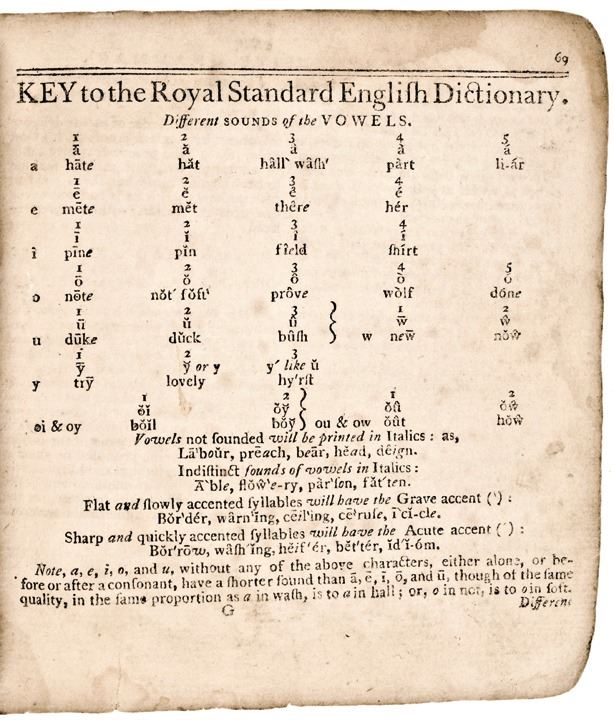 69
KEY to the Royal Standard Engliſh Dictionary.
Different SOUNDS of the VOWELS.
1 2 3 4 5
ā ă â à á
a hāte hăt hâll` wâſh' pàrt li-ár
1 2 3 4
ē ĕ ê é
e mēte mĕt thêre hér
1 2 3 4
ī ĭ
i pīne pĭn field ſhirt
1 2 3 4 5
ō ŏ ô ò ó
o nōte nŏt' ſŏft` prôve wòlf dóne
1 2 3 1 2
ū ŭ û w̄ ŵ
u dūke dŭck bûſh } w new̄ noŵ
1 2 3
ȳ y̆ or y y' like ŭ
y trȳ lovely hy'rſt
1 2 1 2
oi & oy bŏil bŏy } ou & ow ŏût hŏŵ
Vowels not ſounded will be printed in Italics: as,
Lā`boŭr, prēach, beār, hĕad, dēign.
Indiſtinct ſounds of vowels in Italics:
Ā`ble, flŏŵ'e-ry, pàr`ſon, făt'ten.
Flat and ſlowly accented ſyllables will have the Grave accent (`):
Bŏr`dér, wârn`ing, cēil`ing, cē`ruſe, ī`ci-cle.
Sharp and quickly accented ſyllables will have the Acute accent ('):
Bŏr'rōw, wâſh'ing, hĕif'ér, bĕt'tér, ĭd'i-óm.
Note, a, e, i, o, and u, without any of the above characters, either alone, or be-
fore or after a conſonant, have a ſhorter ſound than ā, ē, ī, ō, and ū, though of the ſame
quality, in the ſame proportion as a in waſh, is to a in hall; or, o in not, is to o in ſoft.
G Different